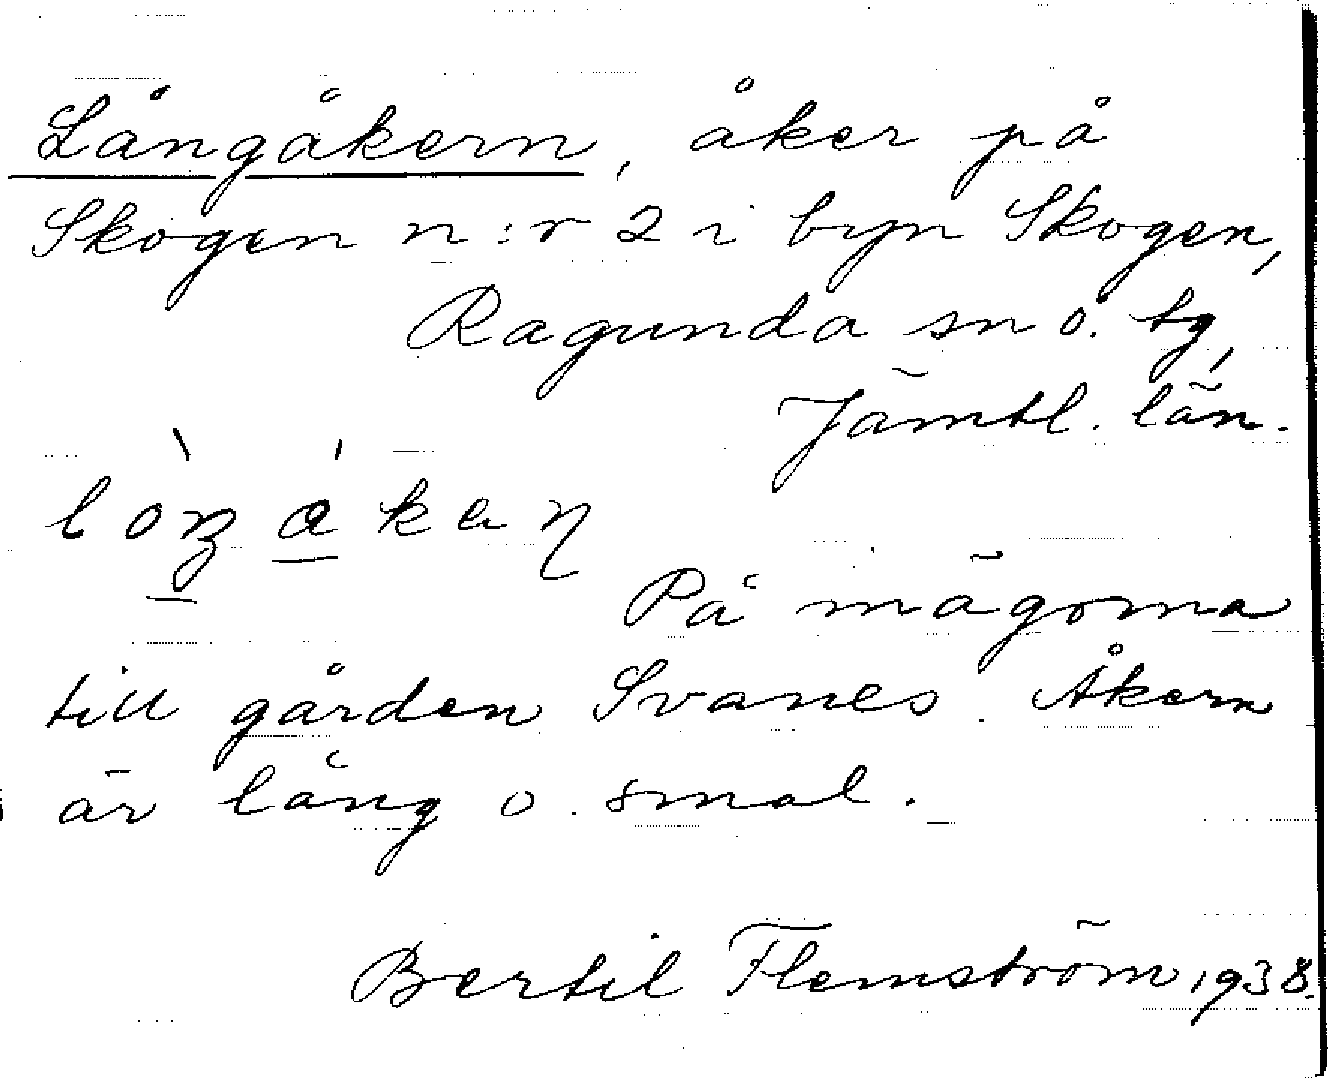 Långåkern, åker på
Skogen n:r 2 i byn Skogen,
Ragunda sn o. tg,
Jämtl. län.
På mågorna
till gården Svanes. Åkern
är lång o. smal.
Bertil Flemström 1938.